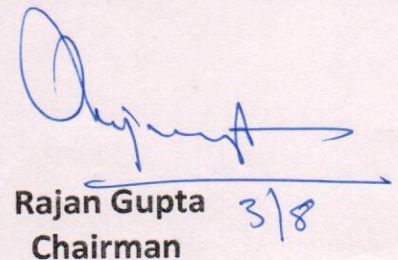 Rajan Gupta 3/8
Chairman